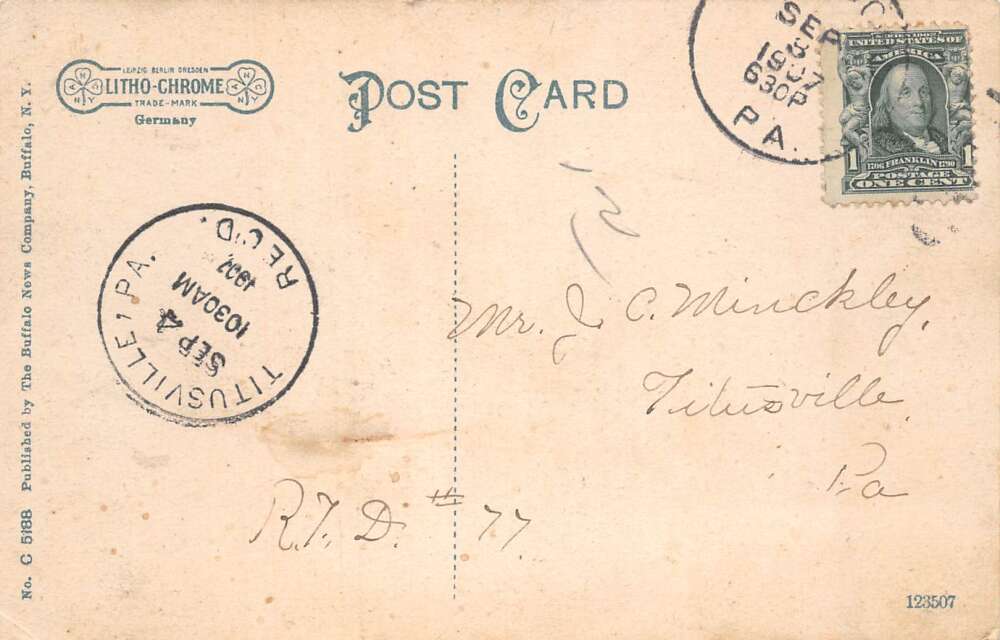 LEIPZIG BERLIN DRESDEN
LITHO-CHROME
TRADE-MARK
Germany
POST CARD
SEP
3
1907
630P
PA.
SERIES 1902
UNITED STATES OF
AMERICA
1706 FRANKLIN 1790
1 POSTAGE 1
ONE CENT
TITUSVILLE, PA.
SEP 4
1030AM
1907
REC'D.
Mr. J. C. Minckley,
Titusville,
Pa
R.F.D. # 77
No. C 5188 Published by The Buffalo News Company, Buffalo, N. Y.
123507